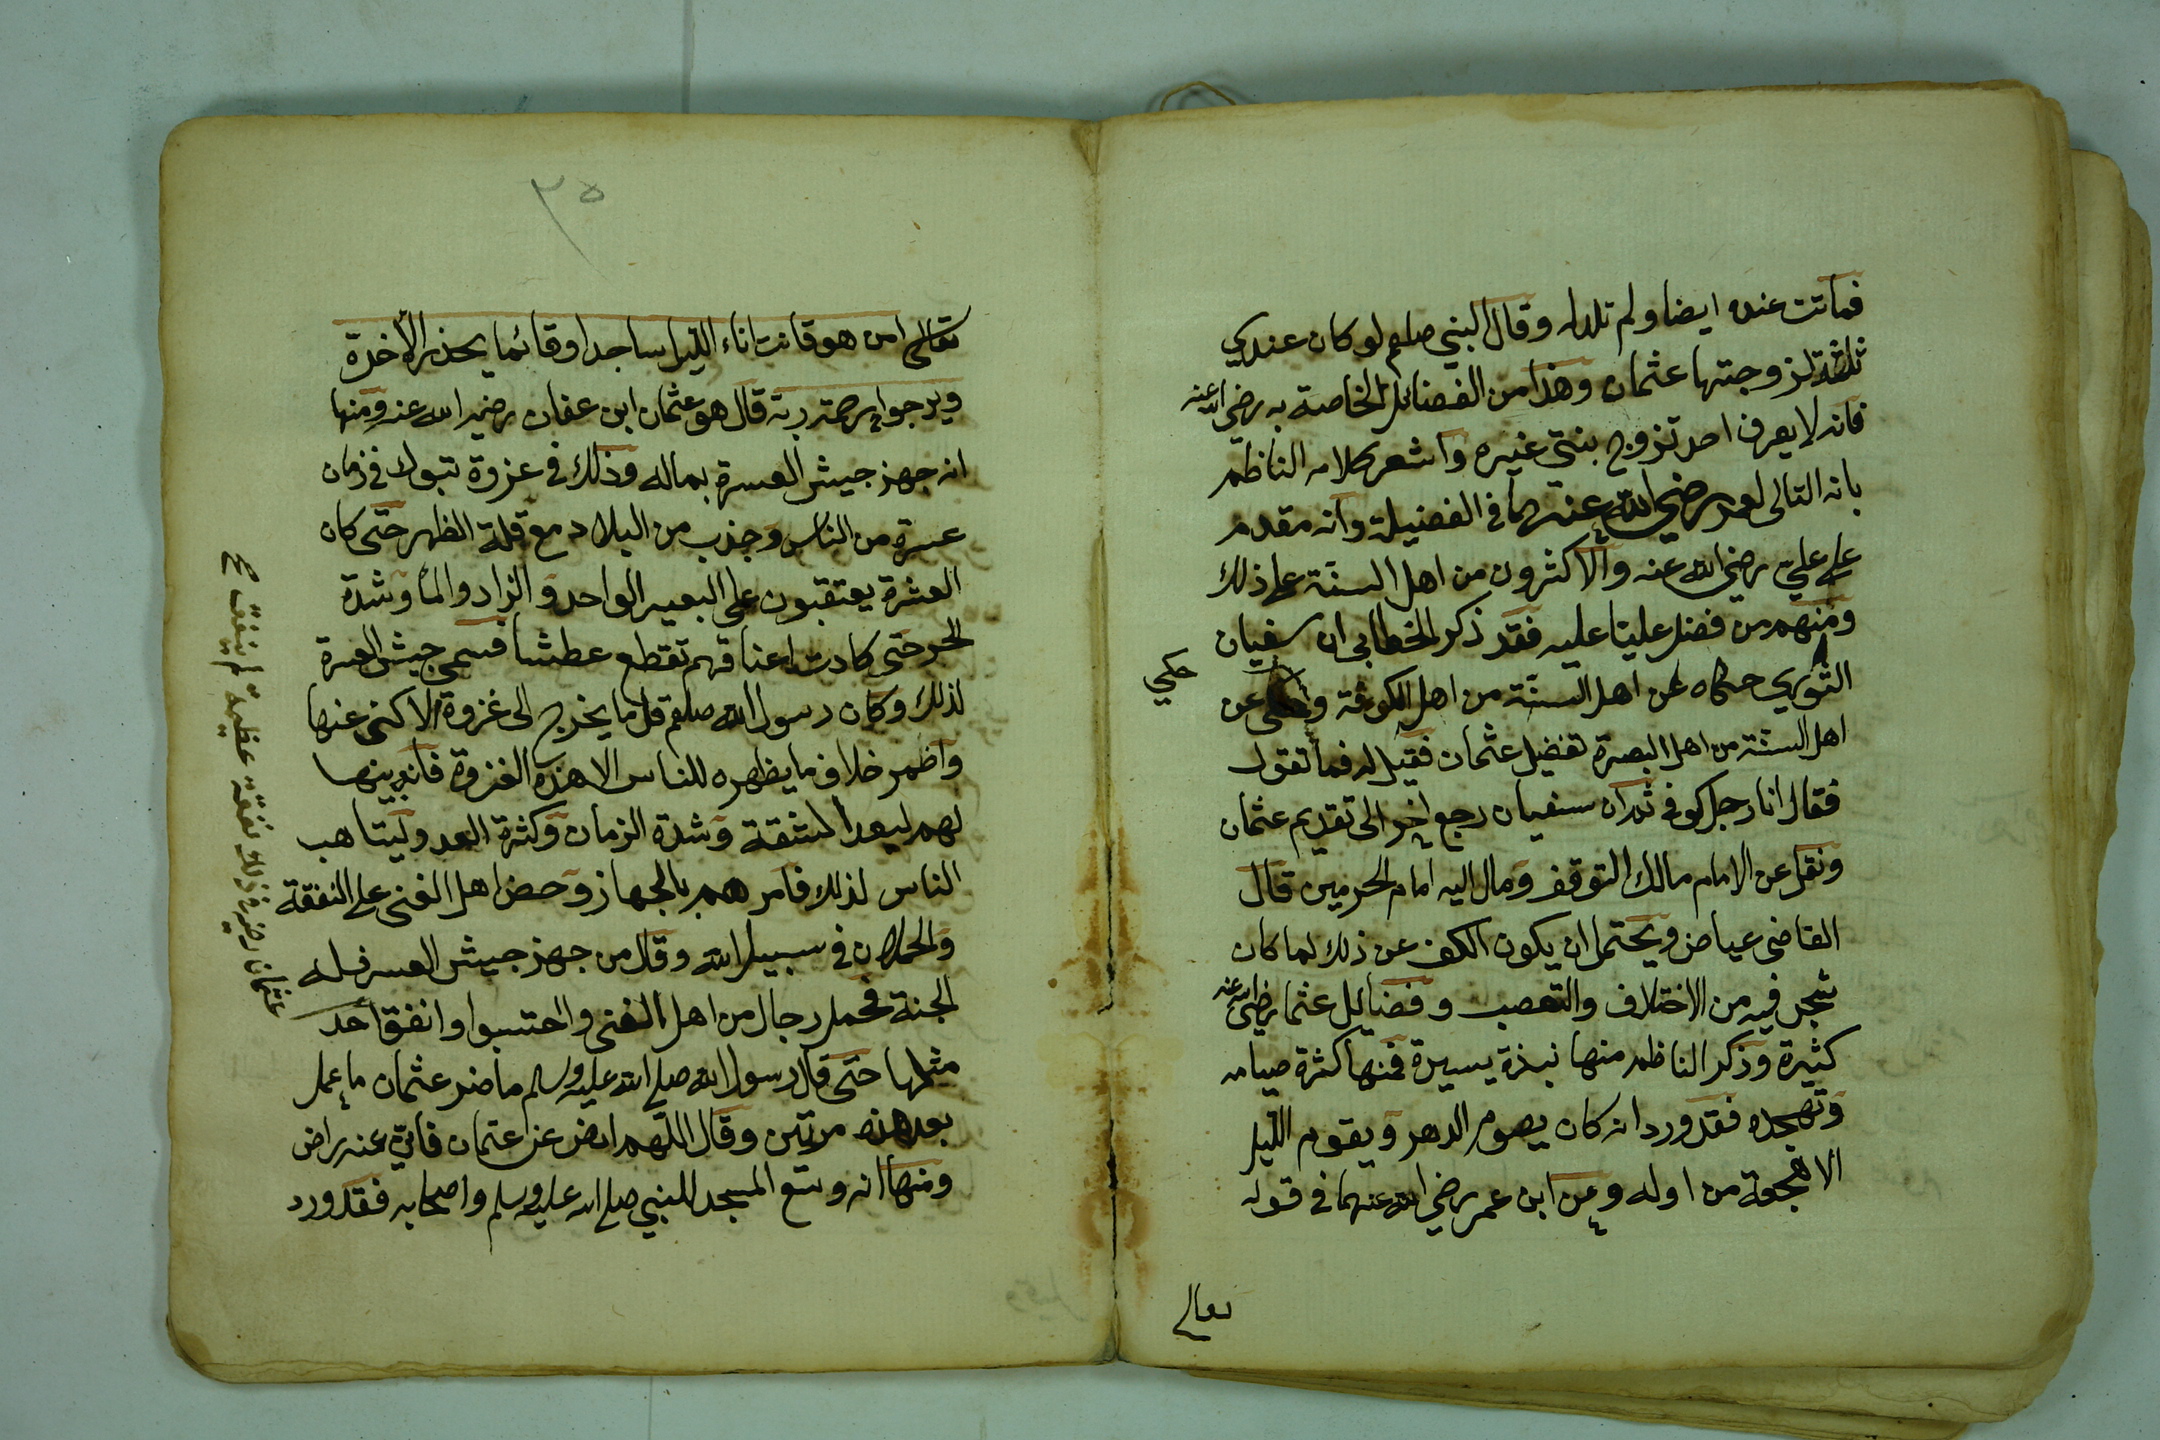 فماتت عنده ايضا ولم تلد له وقال النبي صلعم لو كان عندي
ثلثة لزوجتها عثمان وهذا من الفضائل الخاصة به رضي الله عنه
فانه لا يعرف احد تزوج بنتي غيره واشعر كلامه الناظم
بانه التالى لعمر رضي الله عنهما في الفضيلة وانه مقدم
على علي رضي الله عنه والاكثرون من اهل السنة على ذلك
ومنهم من فضل عليا عليه فقد ذكر الخطابى ان سفيان
الثوري حكاه عن اهل السنة من اهل الكوفة و عن
حكي
اهل السنة من اهل البصرة تفضيل عثمان فقيل له فما تقول
فقال انا رجل كوفي ثم ان سفيان رجع اخرا الى تقديم عثمان
ونقل عن الامام مالك التوقف ومال اليه امام الحرمين قال
القاضى عياض ويحتمل ان يكون الكف عن ذلك لما كان
شجر فيه من الاختلاف والتعصب وفضايل عثمان رضي الله عنه
كثيرة وذكر الناظم منها نبذة يسيرة فمنها كثرة صيامه
وتهجده فقد ورد انه كان يصوم الدهر ويقوم الليل
الا هجعة من اوله وعن ابن عمر رضي الله عنهما في قوله
تعالى
٣٥
تعالى امن هو قانت اناء الليل ساجدا وقائما يحذر الأخرة
ويرجوا رحمة ربه قال هو عثمان ابن عفان رضي الله عنه ومنها
انه جهز جيش العسرة بماله وذلك في غزوة تبوك في زمان
عسرة من الناس وجذب من البلاد مع قلة الظهر حتى كان
العشرة يعتقبون على البعير الواحد والزاد والماء وشدة
الحر حتى كادت اعناقهم تقطع عطشا فسمي جيش العسرة
لذلك وكان رسول الله صلعم قل ما يخرج الى غزوة الا كنى عنها
واظهر خلاف ما يظهره للناس الا هذه الغزوة فانه بينها
لهم لبعد المشقة وشدة الزمان وكثرة العدو وليتاهب
الناس لذلك فامرهم بالجهاز وحض اهل الغنى على النفقة
والحملان في سبيل الله وقال من جهز جيش العسر فله
الجنة فحمل رجال من اهل الغنى واحتسبوا وانفق أحد
مثلها حتى قال رسول الله صلى الله عليه وسلم ما ضر عثمان ما عمل
بعد هذه مرتين وقال اللهم ارض عن عثمان فاني عنه راض
ومنها انه وسع المسجد للنبي صلى الله عليه وسلم واصحابه فقد ورد
عثمان رضي في ذلك نفقة عظيمة لم ينفق ع